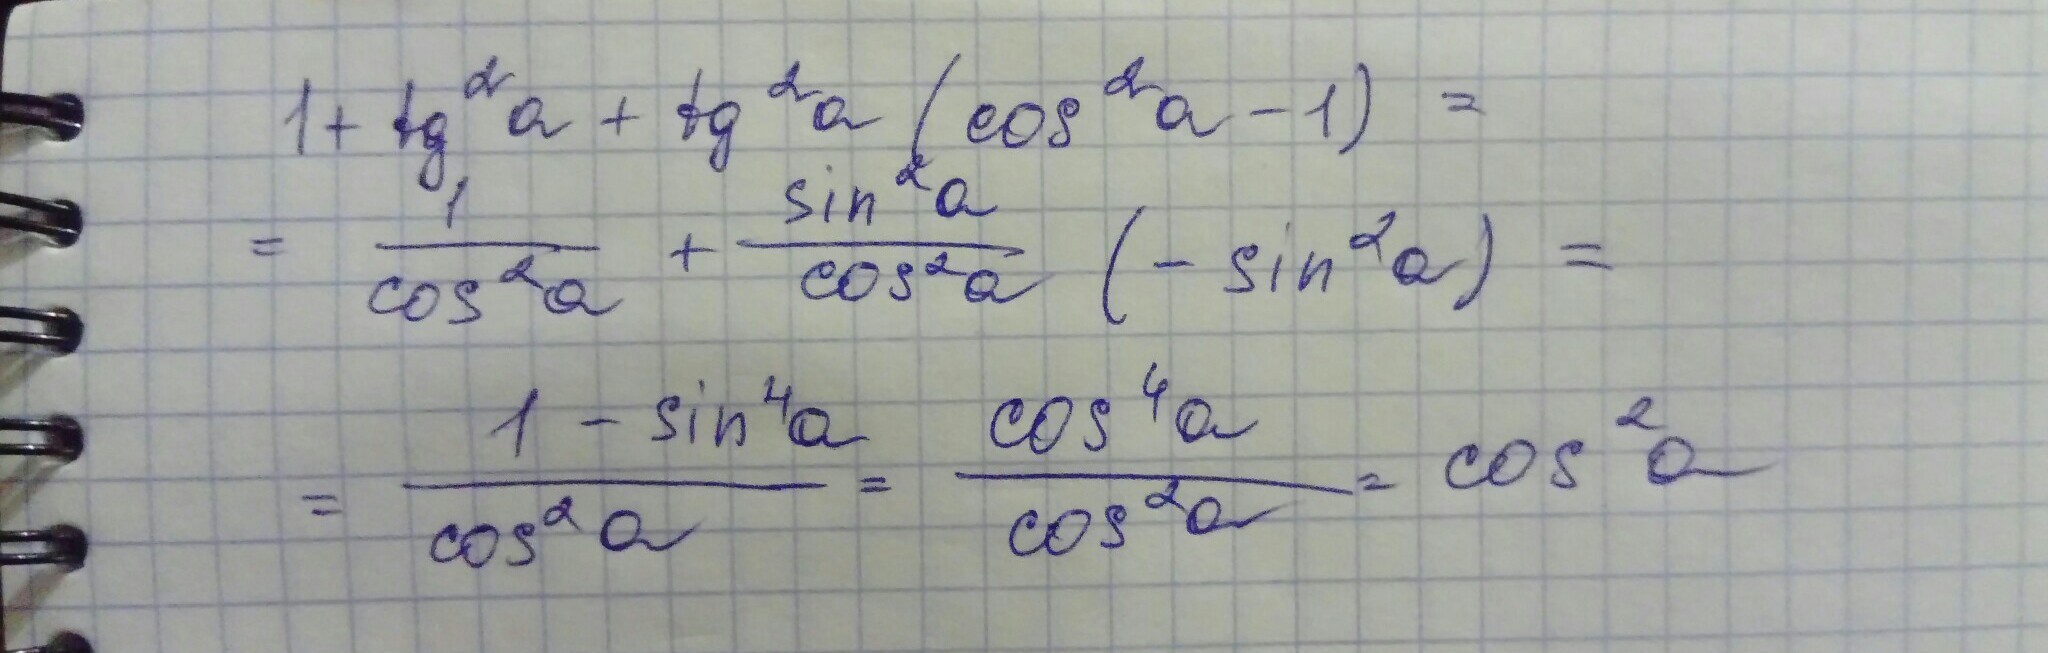 1 + tg²a + tg²a (cos²a - 1) =
= 1/cos²a + sin²a/cos²a (- sin²a) =
= (1 - sin⁴a)/cos²a = cos⁴a/cos²a = cos²a